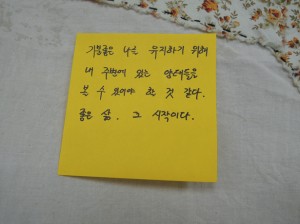 기분좋은 나를 유지하기 위해
내 주변에 있는 상태들을
볼 수 있어야 한 것 같다.
좋은 삶. 그 시작이다.